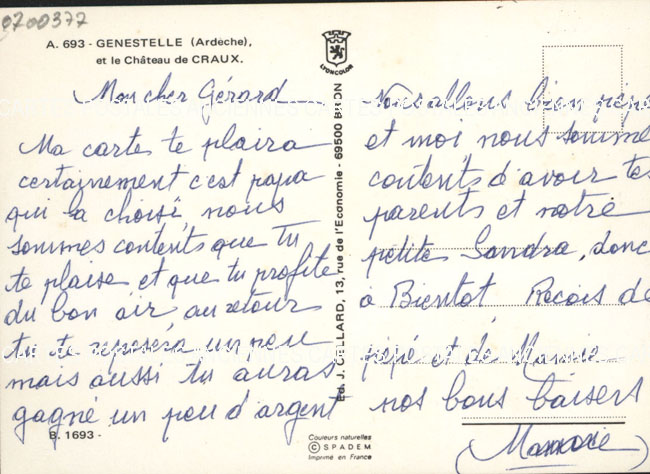 0700377
A. 693 - GENESTELLE (Ardèche),
et le Château de CRAUX.
LYONCOLOR
Mon cher Gérard
Ma carte te plaira
certainement c'est papa
qui l'a choisi, nous
sommes contents que tu
te plaise et que tu profite
du bon air, au retour
tu te reposera un peu
mais aussi tu auras
gagné un peu d'argent
B. 1693 -
Ed. J. CELLARD, 13, rue de l'Economie - 69500 BRON
Couleurs naturelles
© SPADEM
Imprimé en France
Nous allons bien pépé
et moi nous somme
contents d'avoir tes
parents et notre
petite Sandra, donc
à Bientot. Recois de
pépé et de Mamie
nos bons baisers